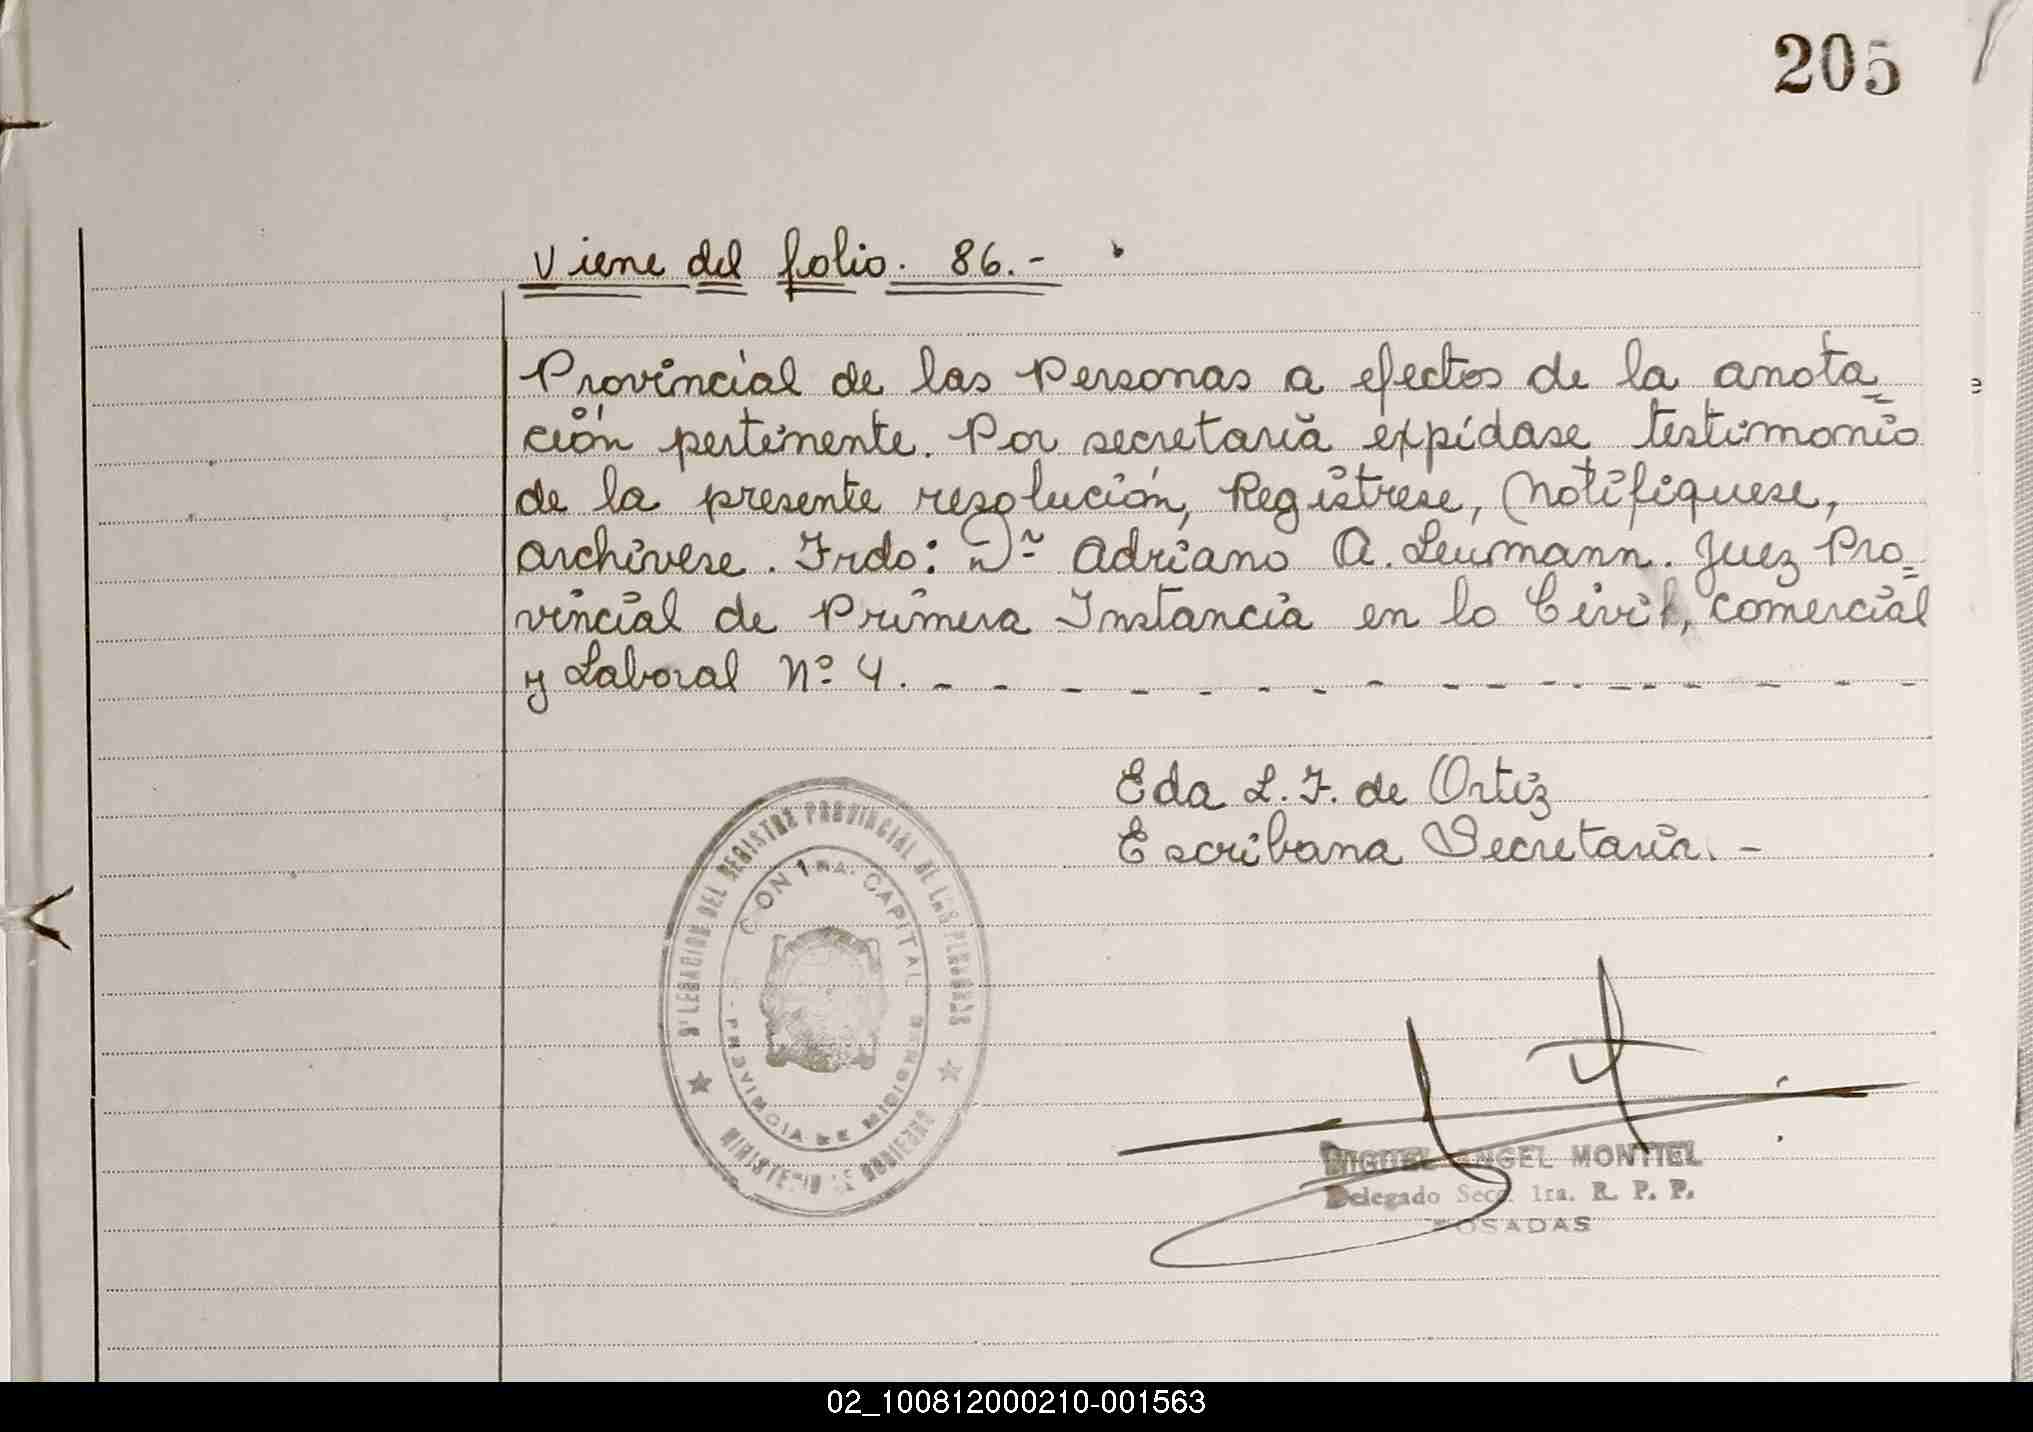 205
Viene del folio. 86.-
Provincial de las Personas a efectos de la anota=
ción pertinente. Por secretaría expídase testimonio
de la presente resolución, Registrese, Notifiquese,
Archivese. Frdo: Dr. Adriano A. Leumann. Juez Pro=
vincial de Primera Instancia en lo Civil, Comercial
y Laboral Nº 4. - - - - - - - - - - - - - - - -
Eda L. F. de Ortiz
Escribana Secretaria. -
DELEGACION DEL REGISTRO PROVINCIAL DE LAS PERSONAS
1RA. CAPITAL
PROVINCIA DE MISIONES
MINISTERIO DE GOBIERNO
MIGUEL ANGEL MONTIEL
Delegado Secc. 1ra. R. P. P.
POSADAS
02_100812000210-001563